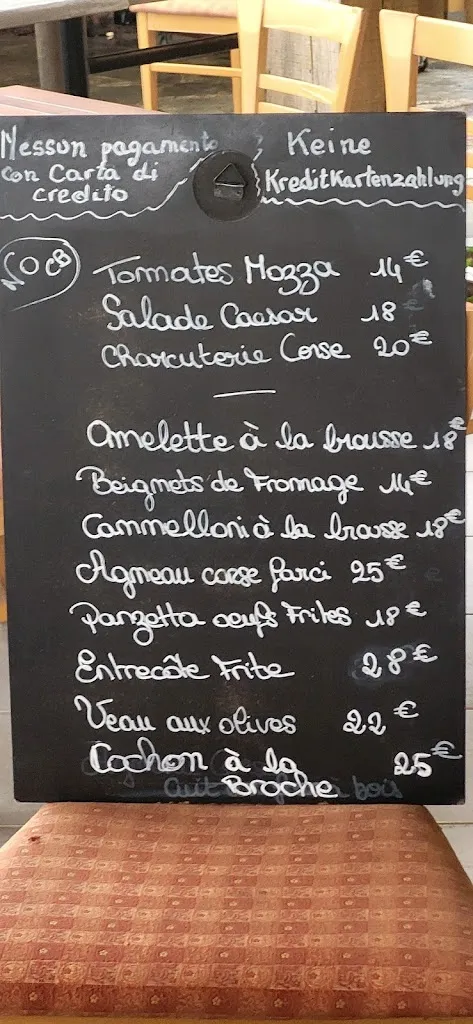 Nessun pagamento
con Carta di
credito
Keine
Kreditkartenzahlung
NO CB
Tomates Mozza 14€
Salade Caesar 18
Charcuterie Corse 20€
Omelette à la brousse 18€
Beignets de Fromage 14€
Cannelloni à la brousse 18€
Agneau corse farci 25€
Panzetta oeufs Frites 18€
Entrecôte Frite 28€
Veau aux olives 22€
Cochon à la 25€
Broche